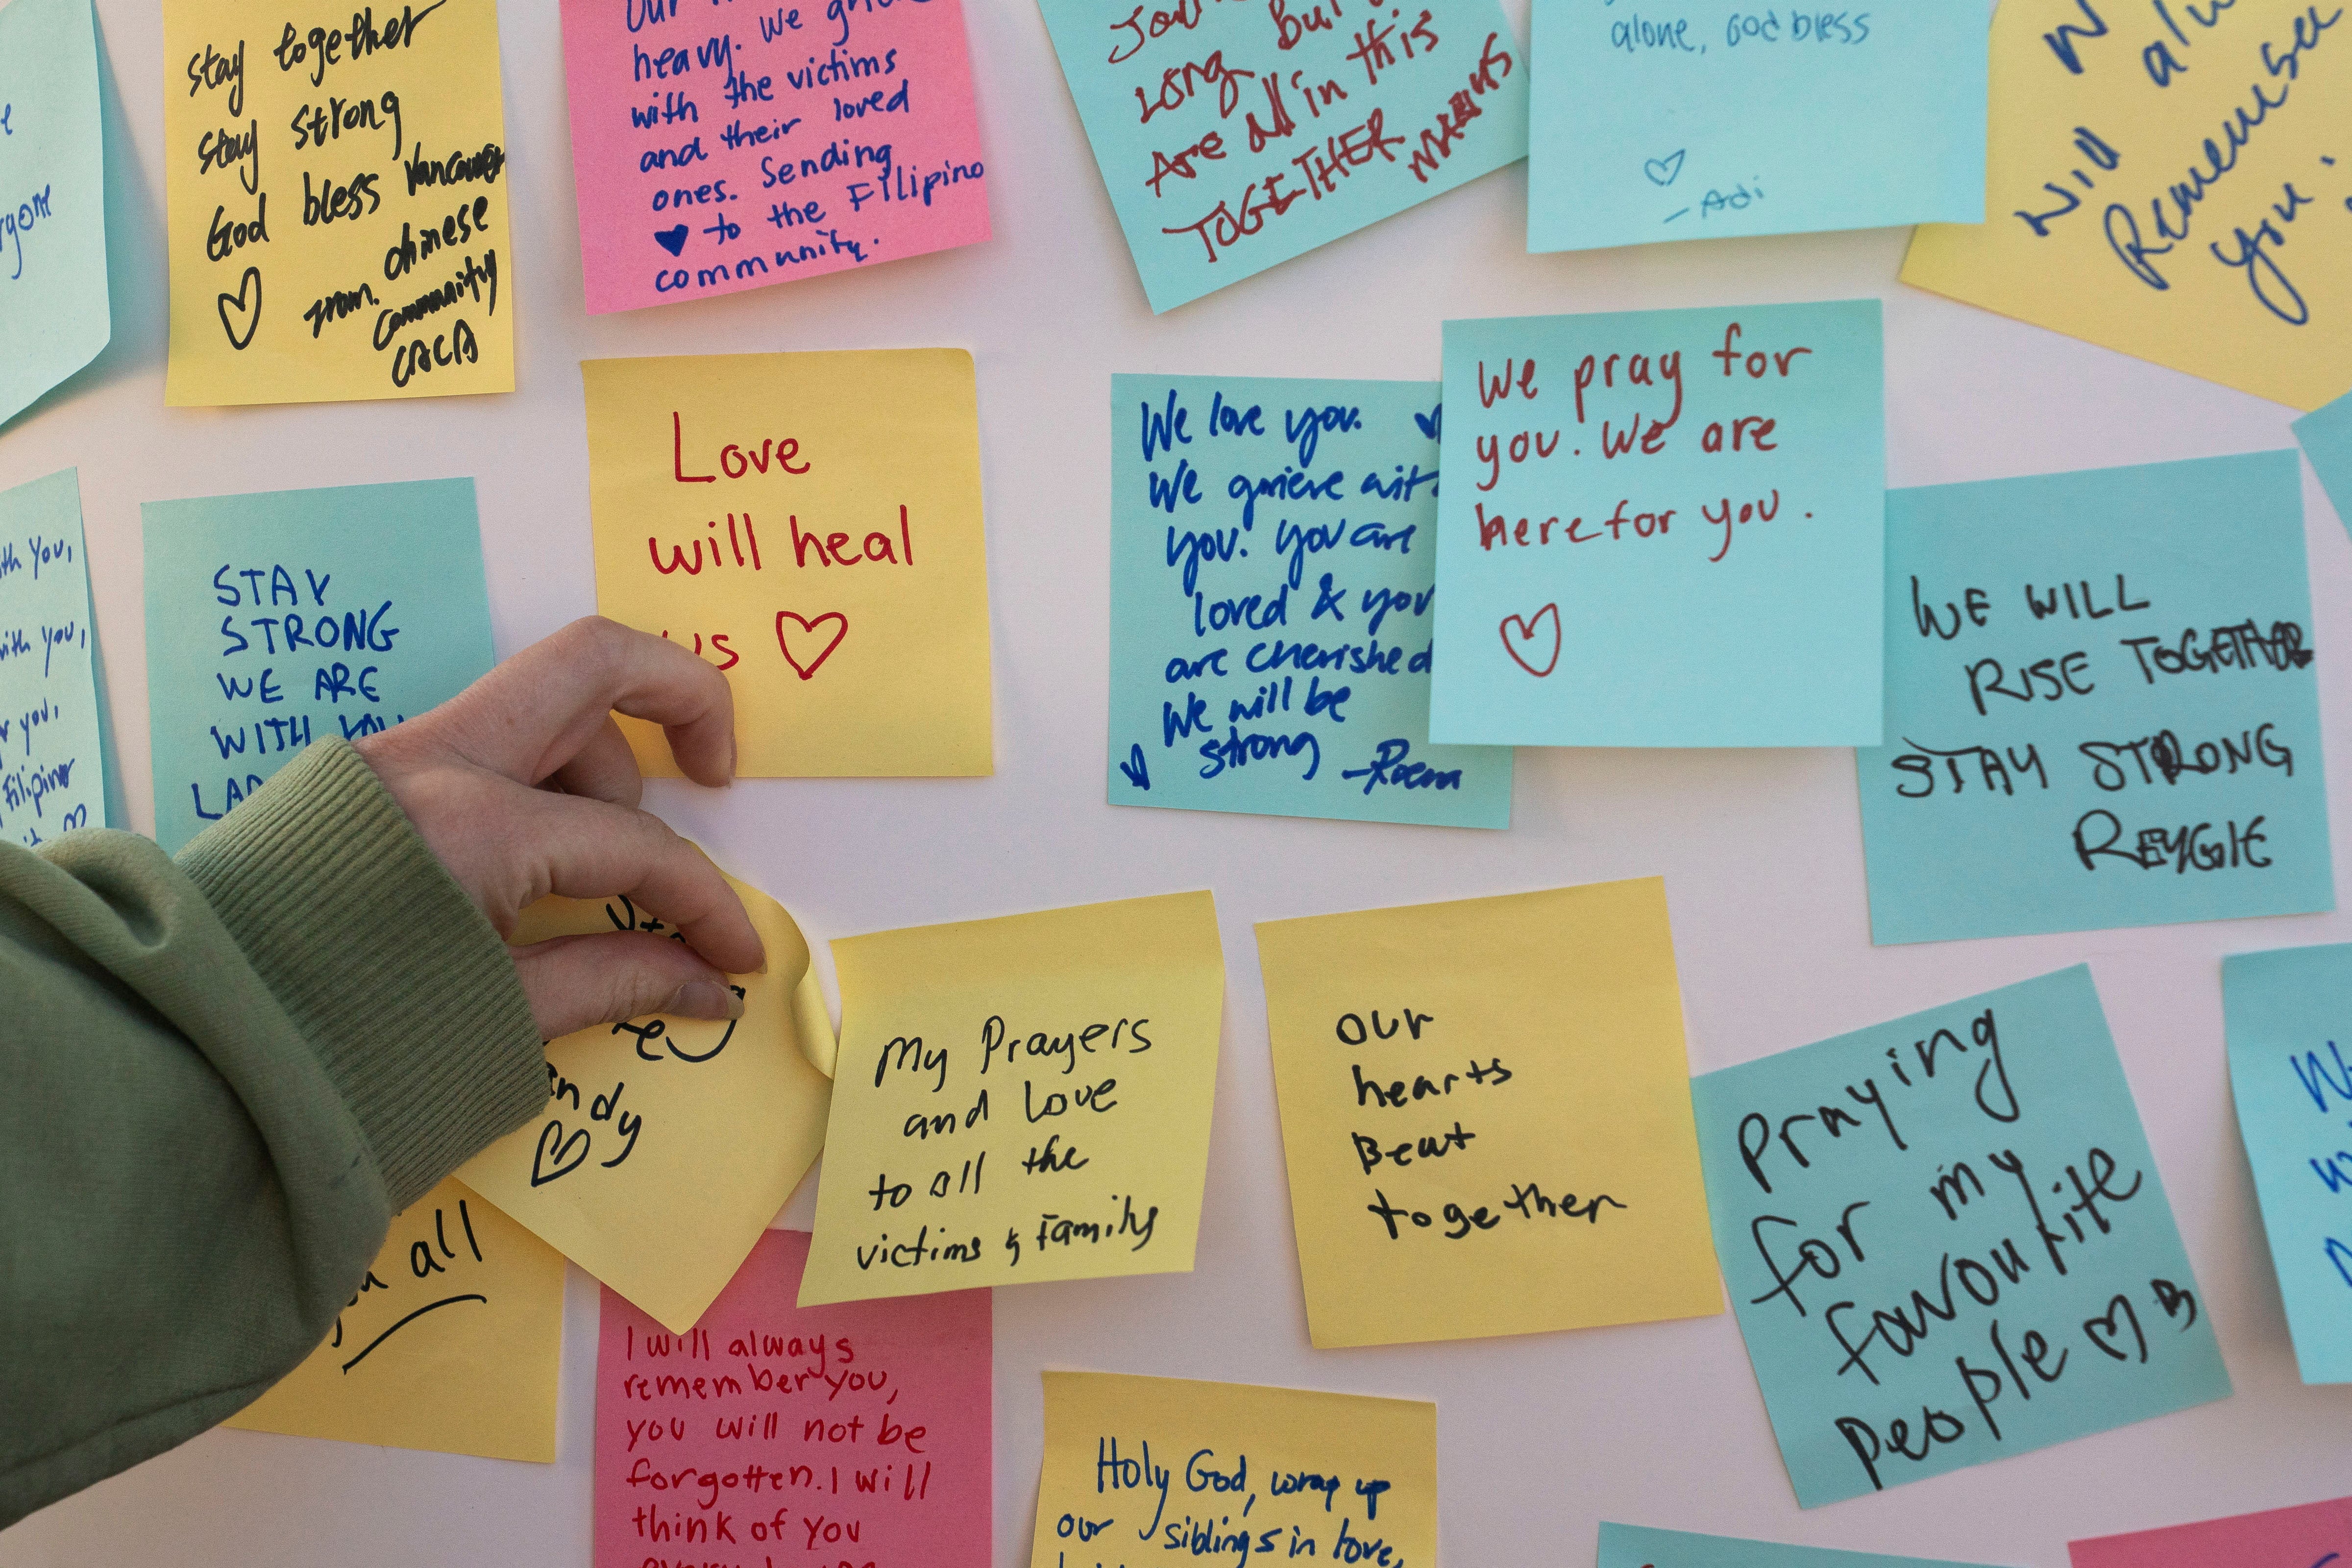 stay together
stay strong
God bless Vancouver
from chinese
community
CACA
heavy. We
with the victims
and their loved
ones. Sending
♥ to the Filipino
community.
Long But
Are all in this
TOGETHER
alone, God bless
♡
- Adi
will
Remember
you.
th you,
with you,
you,
Filipino
STAY
STRONG
WE ARE
WITH YOU
Love
will heal
us ♡
We love you. ♥
We grieve wit
you. You are
loved & you
are cherished
We will be
strong
We pray for
you. We are
here for you.
♡
WE WILL
RISE TOGETHER
STAY STRONG
ndy
♡
all
My Prayers
and Love
to all the
victims & Family
Our
hearts
Beat
together
Praying
for my
favourite
people ♡ B
I will always
remember you,
you will not be
forgotten. I will
think of you
Holy God, wrap up
our siblings in love,